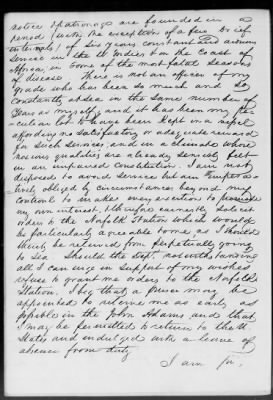 notice & patronage are founded in a
period (with the exception of a few brief
intervals) of six years constant and arduous
service in the W Indies & on the Coast of
Africa, in some of the most fatal seasons
of disease. There is not an officer of my
grade who has been so much and so
constantly at sea in the same number of
years as myself, and it has been my
to have been kept in a vessel
affording no satisfactory or adequate reward
for such services, and in a climate whose
noxious qualities are already sensibly felt
in an impaired constitution. I am not
disposed to avoid service but am impera-
tively obliged by circumstances beyond my
control to make every exertion to promote
my own interest. I therefore earnestly solicit
when in the Norfolk Station which would
be particularly agreeable to me, as I should
thus be relieved from perpetually going
to sea. Should the Dept. notwithstanding
all I can urge in support of my wishes
refuse to grant me orders to the Norfolk
Station, I beg that a Purser may be
appointed to relieve me as early as
possible in the John Adams and that
I may be permitted to return to the U
States and indulged with a leave of
absence from duty
I am &c.